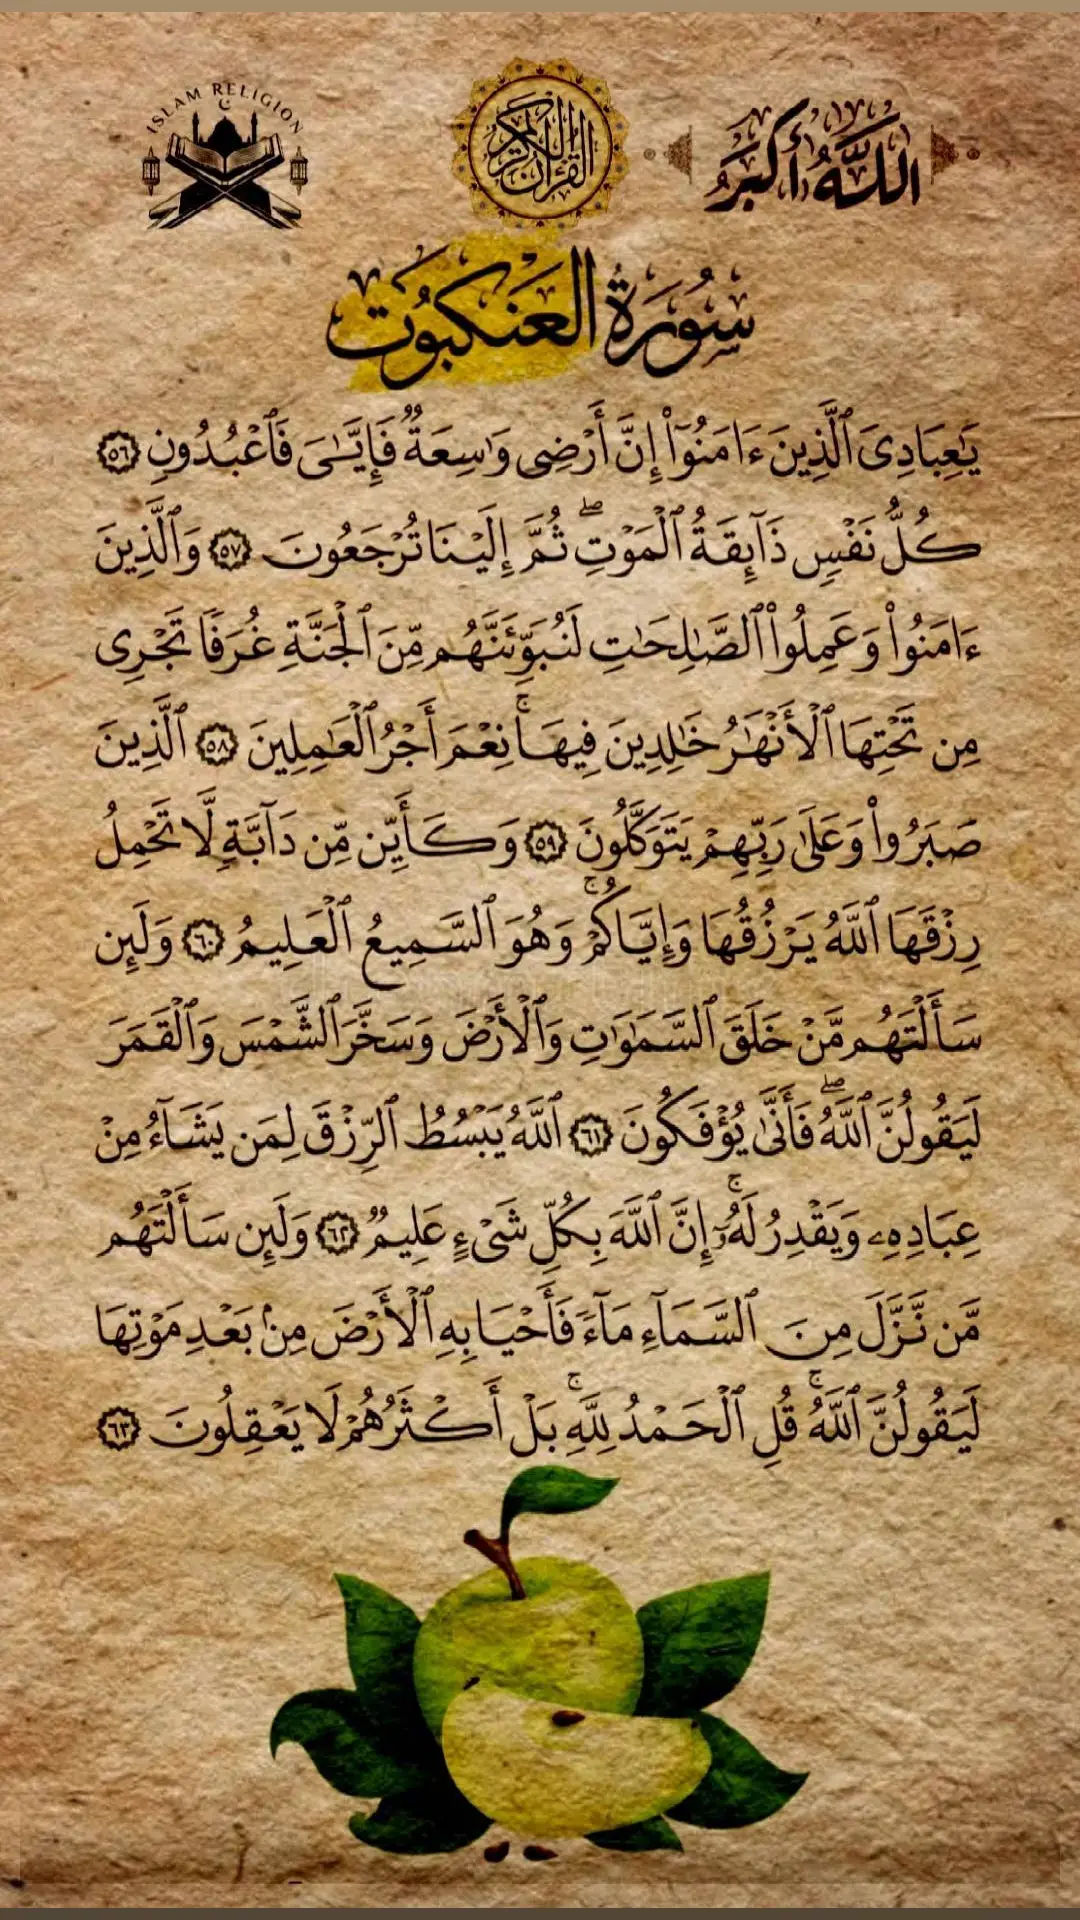 ISLAM RELIGION
القرآن الكريم
اللَّهُ أَكْبَرُ
سُورَةُ العَنكبُوت
يَٰعِبَادِىَ ٱلَّذِينَ ءَامَنُوٓا۟ إِنَّ أَرْضِى وَٰسِعَةٌ فَإِيَّـٰىَ فَٱعْبُدُونِ ٥٦
كُلُّ نَفْسٍ ذَآئِقَةُ ٱلْمَوْتِ ۖ ثُمَّ إِلَيْنَا تُرْجَعُونَ ٥٧ وَٱلَّذِينَ
ءَامَنُوا۟ وَعَمِلُوا۟ ٱلصَّـٰلِحَـٰتِ لَنُبَوِّئَنَّهُم مِّنَ ٱلْجَنَّةِ غُرَفًا تَجْرِى
مِن تَحْتِهَا ٱلْأَنْهَـٰرُ خَـٰلِدِينَ فِيهَا ۚ نِعْمَ أَجْرُ ٱلْعَـٰمِلِينَ ٥٨ ٱلَّذِينَ
صَبَرُوا۟ وَعَلَىٰ رَبِّهِمْ يَتَوَكَّلُونَ ٥٩ وَكَأَيِّن مِّن دَآبَّةٍ لَّا تَحْمِلُ
رِزْقَهَا ٱللَّهُ يَرْزُقُهَا وَإِيَّاكُمْ ۚ وَهُوَ ٱلسَّمِيعُ ٱلْعَلِيمُ ٦٠ وَلَئِن
سَأَلْتَهُم مَّنْ خَلَقَ ٱلسَّمَـٰوَٰتِ وَٱلْأَرْضَ وَسَخَّرَ ٱلشَّمْسَ وَٱلْقَمَرَ
لَيَقُولُنَّ ٱللَّهُ ۖ فَأَنَّىٰ يُؤْفَكُونَ ٦١ ٱللَّهُ يَبْسُطُ ٱلرِّزْقَ لِمَن يَشَآءُ مِنْ
عِبَادِهِۦ وَيَقْدِرُ لَهُۥٓ ۚ إِنَّ ٱللَّهَ بِكُلِّ شَىْءٍ عَلِيمٌ ٦٢ وَلَئِن سَأَلْتَهُم
مَّن نَّزَّلَ مِنَ ٱلسَّمَآءِ مَآءً فَأَحْيَا بِهِ ٱلْأَرْضَ مِنۢ بَعْدِ مَوْتِهَا
لَيَقُولُنَّ ٱللَّهُ ۚ قُلِ ٱلْحَمْدُ لِلَّهِ ۚ بَلْ أَكْثَرُهُمْ لَا يَعْقِلُونَ ٦٣